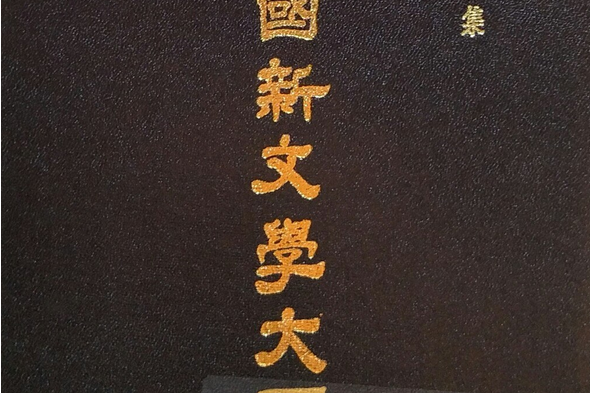 集
國新文學大